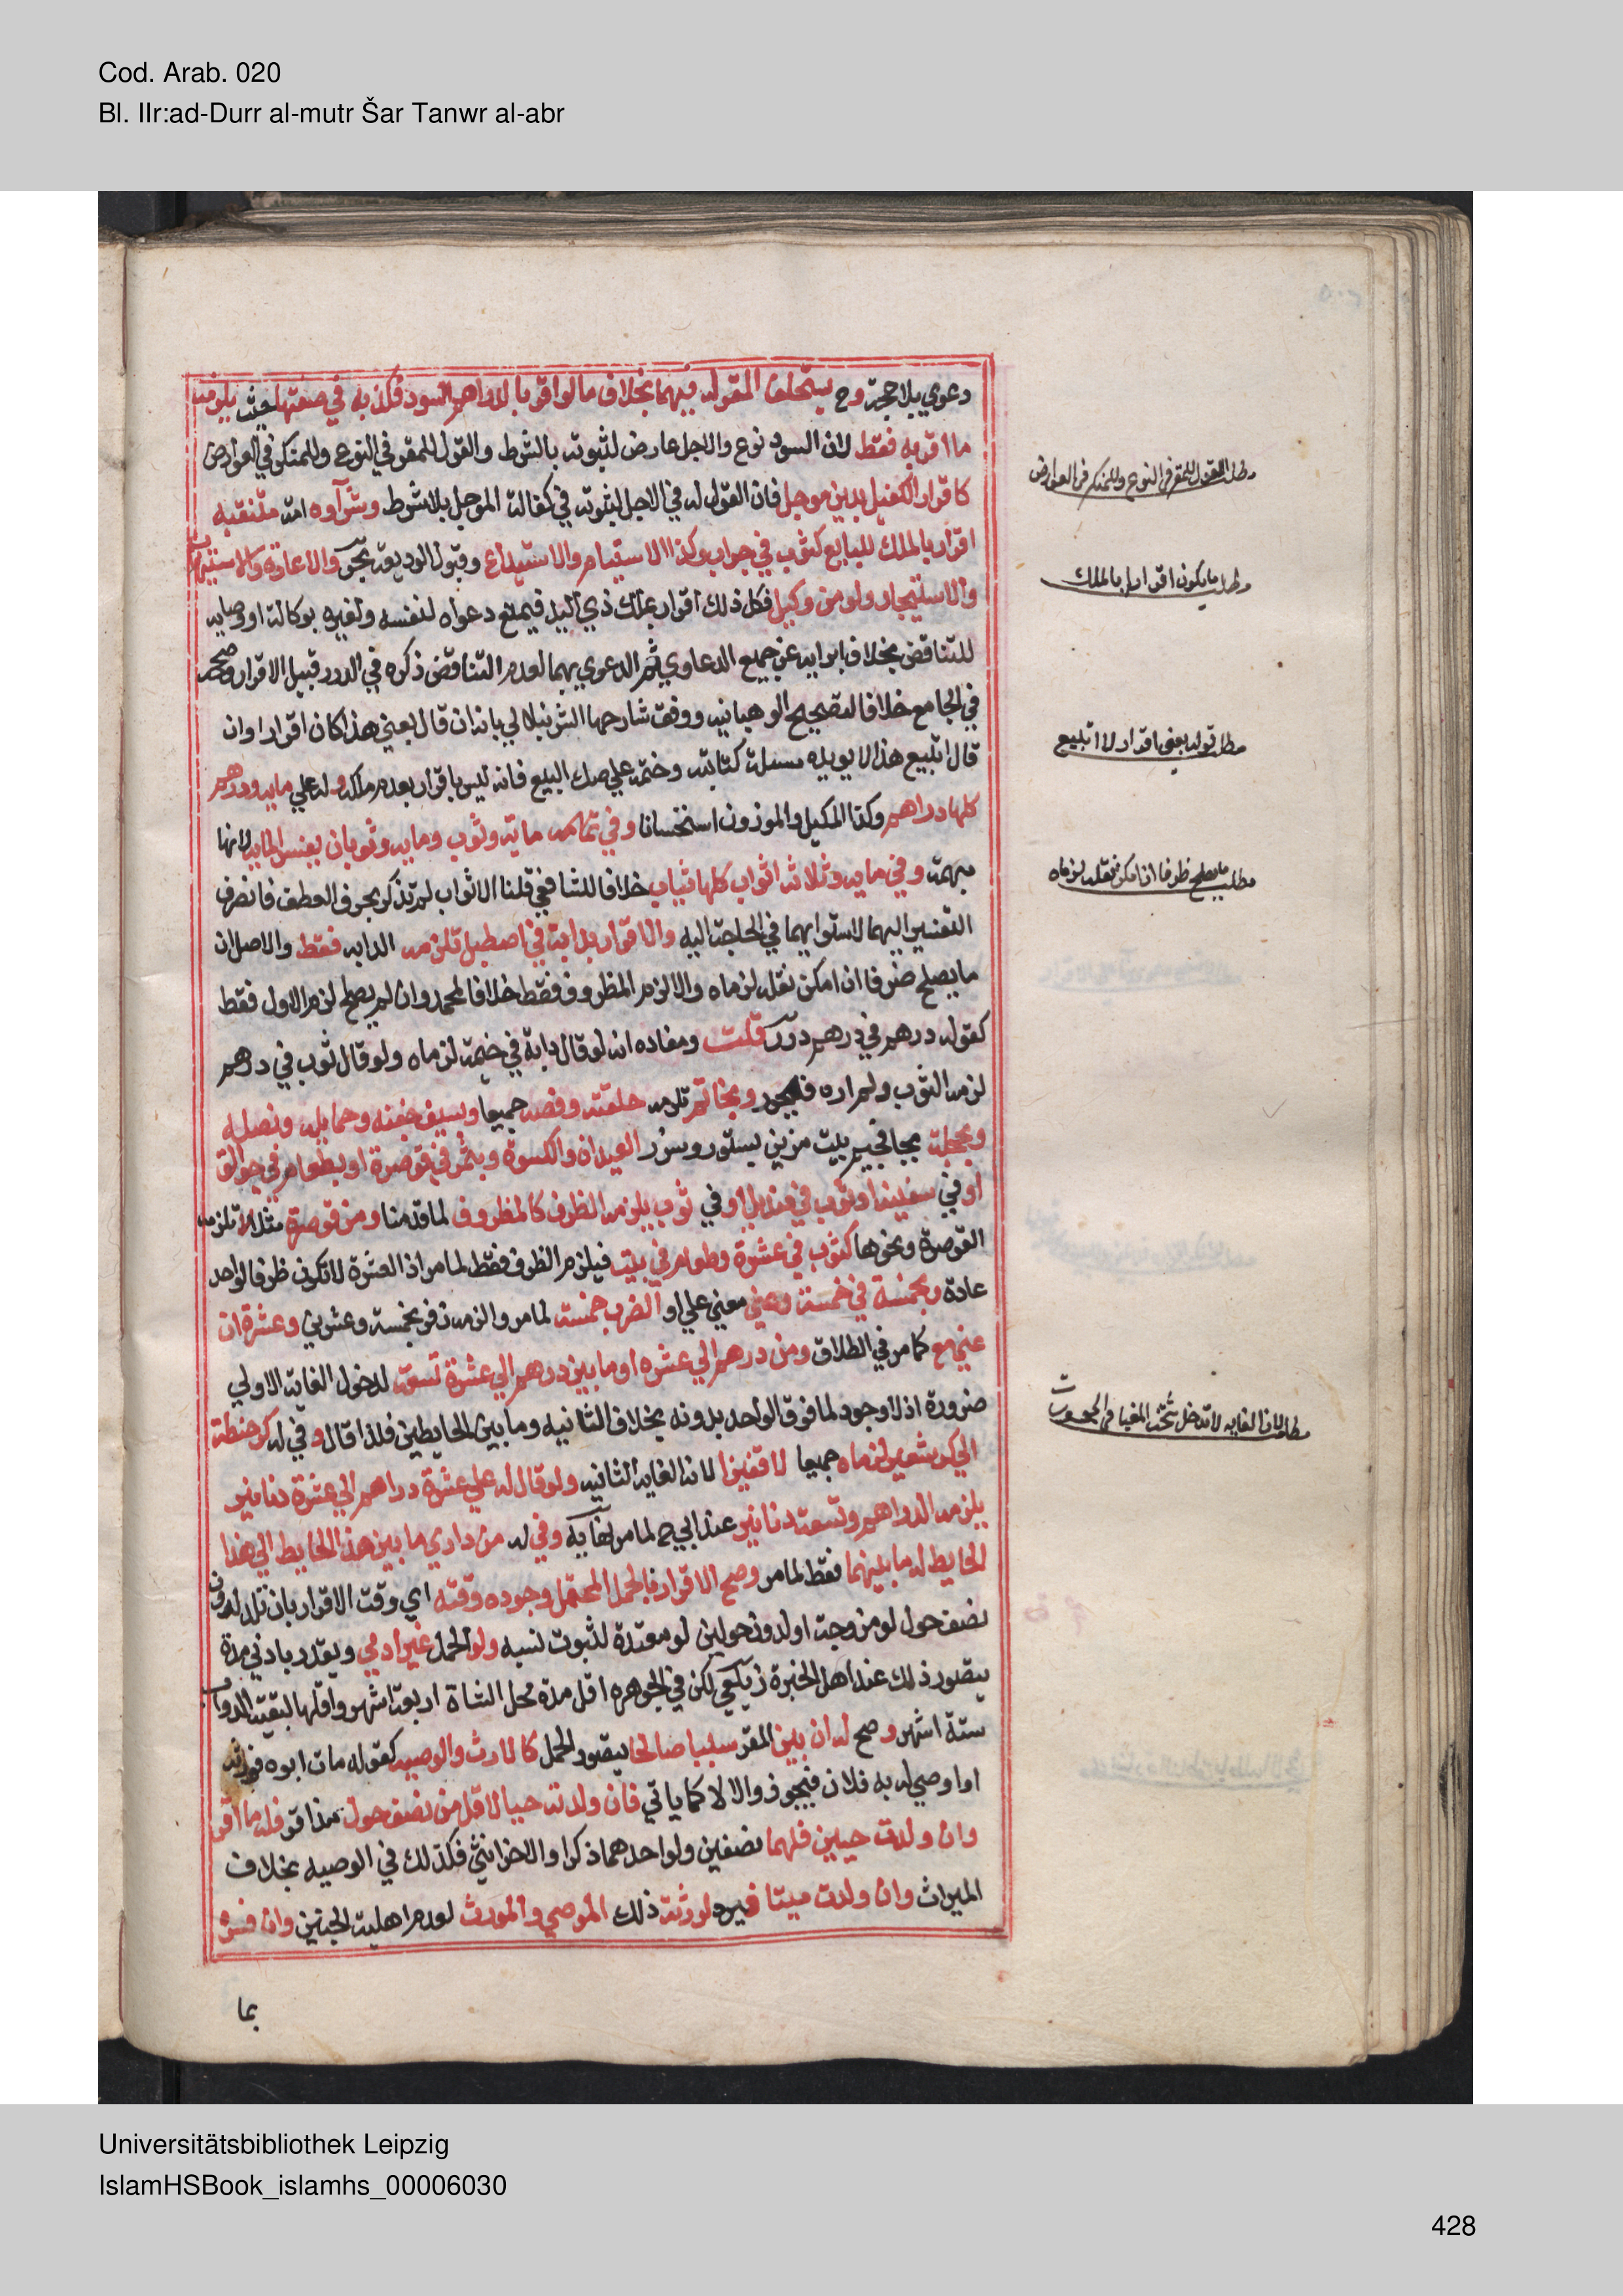 Cod. Arab. 020
Bl. IIr:ad-Durr al-mutr Šar Tanwr al-abr
دعوي بلا حجة وح يستحلف المقر له فيهما بخلاف مالو اقر بالدراهم السود فكذبه في صفتها حيث يلزمه
ما اقر به فقط لان السود نوع والاجل عارض لثبوته بالشرط والقول للمقر في النوع وللمنكر في العوارض
كاقرار الكفيل بدين موجل فان القول له في الاجل لثبوته في كفالة الموجل بلا شرط وشرآوه امة متنقبه
اقرار بالملك للبايع كثوب في جراب وكذا الاستيام والاستيداع وقبول الوديعة بحر والاعارة والاستيهاب
والاستيجار ولو من وكيل فكل ذلك اقرار بملك ذي اليد فيمنع دعواه لنفسه ولغيره بوكالة او وصايه
للتناقض بخلاف ابرايه عن جميع الدعاوي ثم الدعوي بهما لعدم التناقض ذكره في الدرر قبيل الاقرار وصححه
في الجامع خلافا لتصحيح الوهبانيه ووفق شارحها الشرنبلالي بانه ان قال بعني هذا كان اقرارا وان
قال اتبيع هذا لا يويده مسلة كتابته وختمه علي صك البيع فانه ليس باقرار بعدم ملكه وله علي مايه ودرهم
كلها دراهم وكذا المكيل والموزون استحسانا وفي مائة وثوب ومايه وثوبان يفسر المايه لانها
مبهمة وفي مايه وثلاثة اثواب كلها ثياب خلافا للشافعي قلنا الاثواب لم تذكر بحرف العطف فانصرف
التفسير اليهما لاستوايهما في الحاجة اليه والاقرار بدابة في اصطبل تلزمه الدابه فقط والاصل ان
ما يصلح ظرفا ان امكن نقله لزماه والا لزم المظروف فقط خلافا لمحمد وان لم يصلح لزم الاول فقط
كقوله درهم في درهم درر قلت ومفاده انه لو قال دابة في خيمة لزماه ولو قال ثوب في درهم
لزمه الثوب ولم اره فليحرر وبخاتم تلزمه حلقته وفصه جميعا وبسيف جفنه وحمايله ونصله
وبحجلة بيت مزين بستور وسرر العيدان والكسوة وبتمر في قوصرة او بطعام في جوالق
او في سفينة او ثوب في منديل او في ثوب يلزمه الظرف كالمظروف لما قدمنا ومن قوصرة مثلا لا تلزمه
القوصرة ونحوها كثوب في عشرة وطعام في بيت فيلزم الظرف فقط لما مر اذ العشرة لا تكون ظرفا لواحد
عادة وبخمسة في خمسة وعني معني علي او الضرب خمسة لما مر والزمه زفر بخمسة وعشرين وعشرة ان
عني مع كما مر في الطلاق ومن درهم الي عشره او ما بين درهم الي عشرة تسعة لدخول الغاية الاولي
ضرورة اذ لا وجود لما فوق الواحد بدونه بخلاف الثانيه وما بين الحايطين فلذا قال وفي له كر حنطة
الي كر شعير لزماه جميعا الا قفيزا لانه الغايه الثانيه ولو قال له علي عشرة دراهم الي عشرة دنانير
يلزمه الدراهم وتسعة دنانير عند ابي ح لما مر نهآيه وفي له من داري ما بين هذا الحايط الي هذا
الحايط له ما بينهما فقط لما مر وصح الاقرار بالحمل المحتمل وجوده وقته اي وقت الاقرار بان تلد لدون
نصف حول لو مزوجة او لدون حولين لو معتدة لثبوت نسبه ولو الحمل غير ادمي ويقدر بادني مدة
يتصور ذلك عند اهل الخبرة زيلعي لكن في الجوهره اقل مدة حمل الشاة اربعة اشهر واقلها لبقية الدواب
ستة اشهر وصح له ان بين المقر سببا صالحا يتصور للحمل كالارث والوصيه كقوله مات ابوه فورثه
او اوصي له به فلان فيجوز والا لا كما ياتي فان ولدته حيا لاقل من نصف حول مذ اقر فله ما اقر
وان ولدت حيين فلهما نصفين ولو احدهما ذكرا والاخر انثي فكذلك في الوصيه بخلاف
الميراث وان ولدت ميتا فيرد لورثة ذلك الموصي والمورث لعدم اهلية الجنين وان فسره
بما
مطلب القول للمقر في النوع وللمنكر في العوارض
مطلب ما يكون اقرارا بالملك
مطلب قوله بعني اقرار لا اتبيع
مطلب ما يصلح ظرفا ان امكن نقله لزماه
مطلب الغايه لا تدخل تحت المغيا في
Universitätsbibliothek Leipzig
IslamHSBook_islamhs_00006030
428